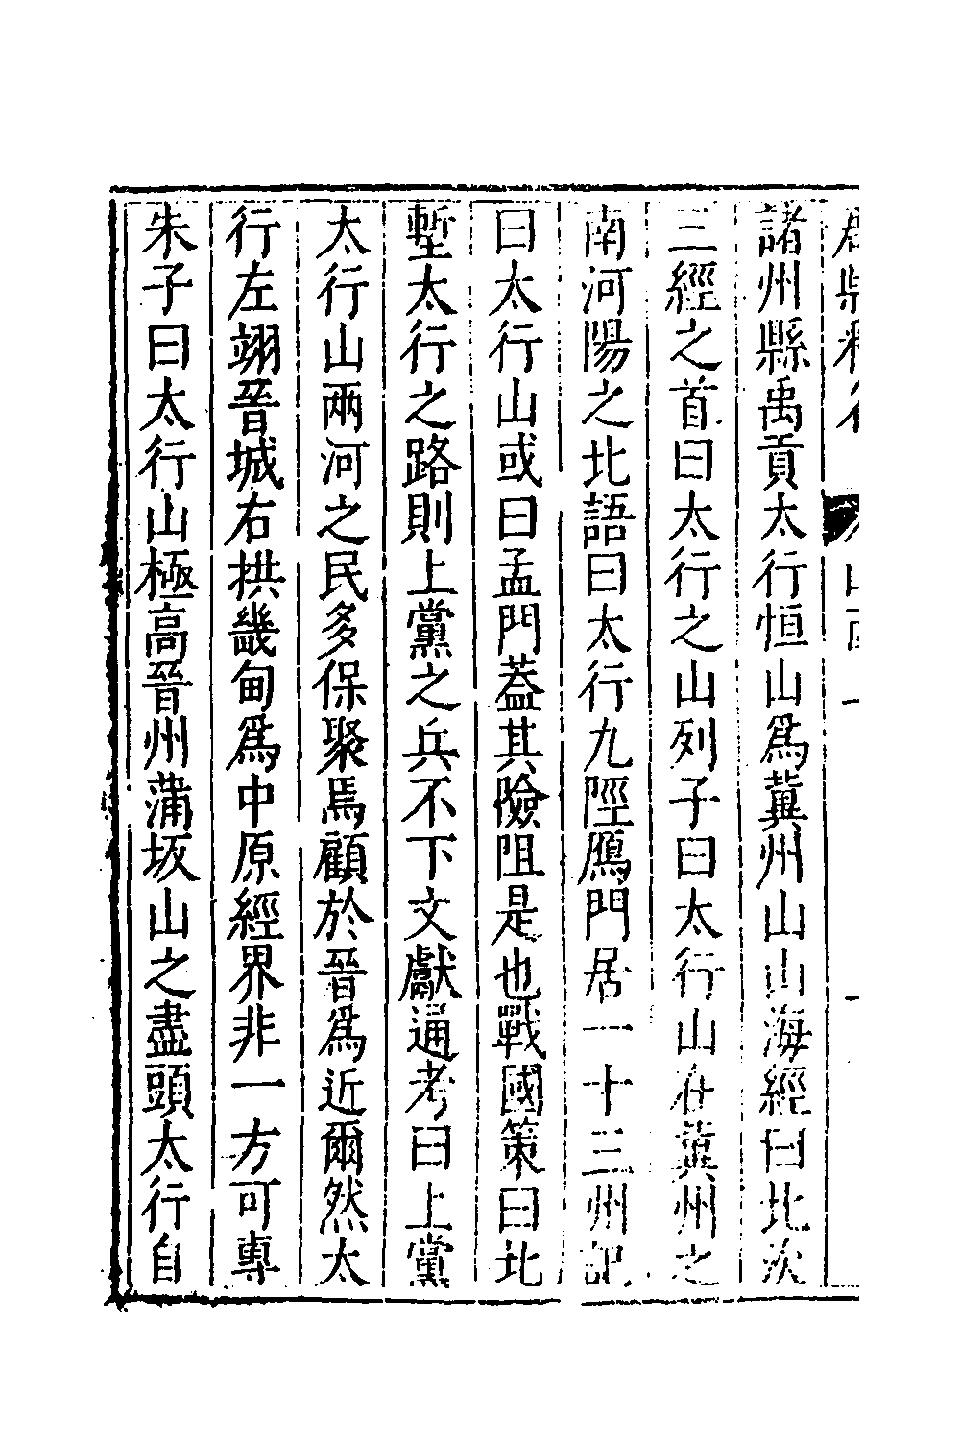 諸州縣禹貢太行恒山爲冀州山山海經曰北次
三經之首曰太行之山列子曰太行山在冀州之
南河陽之北語曰太行九陘鴈門居一十三州記
曰太行山或曰孟門葢其險阻是也戰國策曰北
塹太行之路則上黨之兵不下文獻通考曰上黨
太行山兩河之民多保聚焉顧於晉爲近爾然太
行左翊晉城右拱畿甸爲中原經界非一方可專
朱子曰太行山極高晉州蒲坂山之盡頭太行自